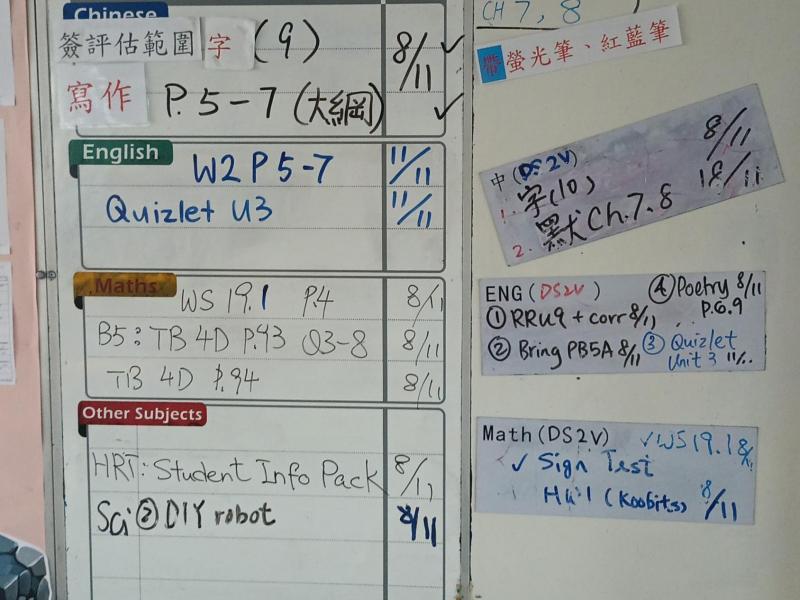 Chinese
簽評估範圍 字 (9) 8/11 ✓
寫作 P.5-7 (大綱) ✓
English
W2 P5-7 11/11
Quizlet U3 11/11
Maths
WS 19.1 P.4 8/11
B5: TB 4D P.93 Q3-8 8/11
TB 4D P.94 8/11
Other Subjects
HRT: Student Info Pack 8/11
Sci ② DIY robot 8/11
CH 7, 8 )
帶螢光筆、紅藍筆
中(DS2V) 8/11
1. 字(10) 18/11
2. 默 Ch.7.8
ENG (DS2V) ④ Poetry 8/11
P.6.9
① RRU9 + corr 8/11
② Bring PB5A 8/11 ③ Quizlet
Unit 3 11/11
Math (DS2V) ✓ WS 19.1 8/11
✓ Sign Test
(Koobits) 8/11